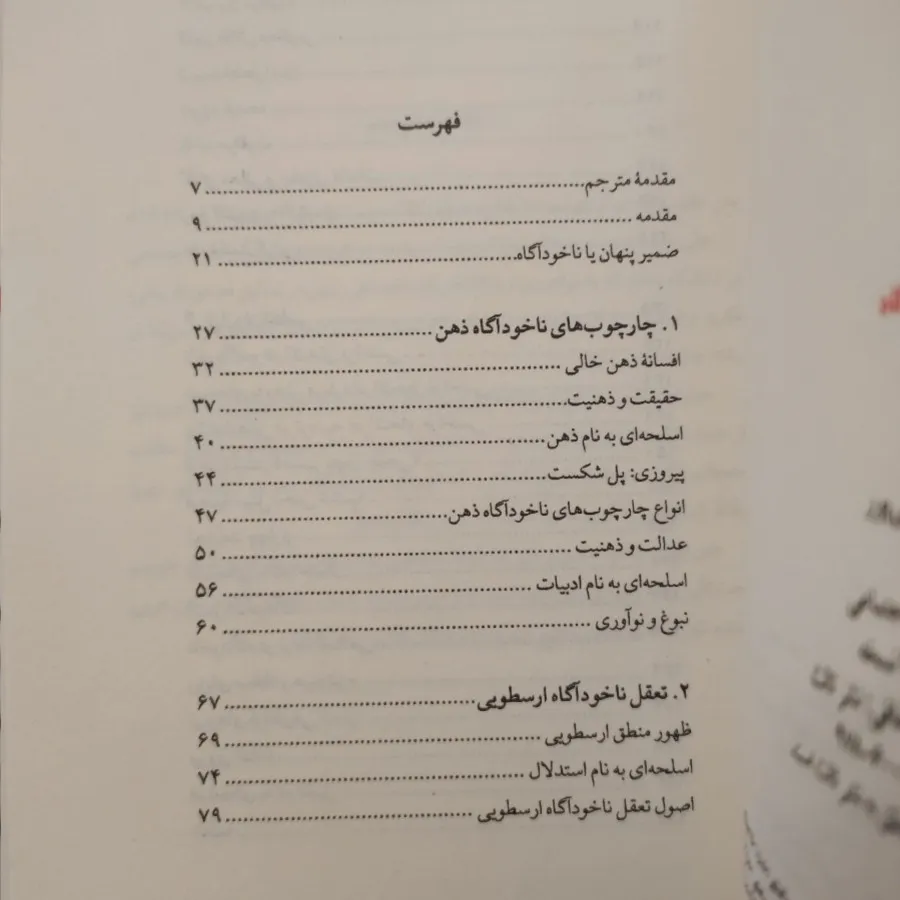 فهرست
مقدمهٔ مترجم ........ ۷
مقدمه ........ ۹
ضمیر پنهان یا ناخودآگاه ........ ۲۱
۱. چارچوب‌های ناخودآگاه ذهن ........ ۲۷
افسانهٔ ذهن خالی ........ ۳۲
حقیقت و ذهنیت ........ ۳۷
اسلحه‌ای به نام ذهن ........ ۴۰
پیروزی: پل شکست ........ ۴۴
انواع چارچوب‌های ناخودآگاه ذهن ........ ۴۷
عدالت و ذهنیت ........ ۵۰
اسلحه‌ای به نام ادبیات ........ ۵۶
نبوغ و نوآوری ........ ۶۰
۲. تعقل ناخودآگاه ارسطویی ........ ۶۷
ظهور منطق ارسطویی ........ ۶۹
اسلحه‌ای به نام استدلال ........ ۷۴
اصول تعقل ناخودآگاه ارسطویی ........ ۷۹